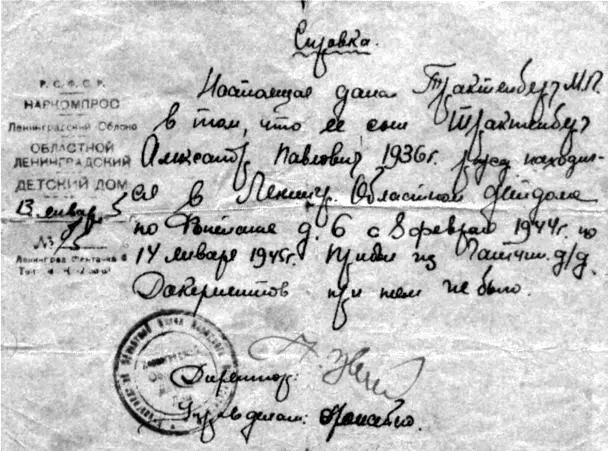 Справка.
Р. С. Ф. С. Р.
НАРКОМПРОС
Ленинградский Облоно
ОБЛАСТНОЙ
ЛЕНИНГРАДСКИЙ
ДЕТСКИЙ ДОМ
13 январь 5
№
Ленинград Фонтанка 6
Настоящая дана Трактенберг М.П.
в том, что ее сын Трактенберг
Александр Павлович 1936г. рожд находил-
ся в Ленингр. Областном детдоме
по Фонтанке д. 6 с 8 февраля 1944г. по
14 января 1945г. Прибыл из Гатчин. д/д.
Документов при нем не было.
Директор:
Управделами: